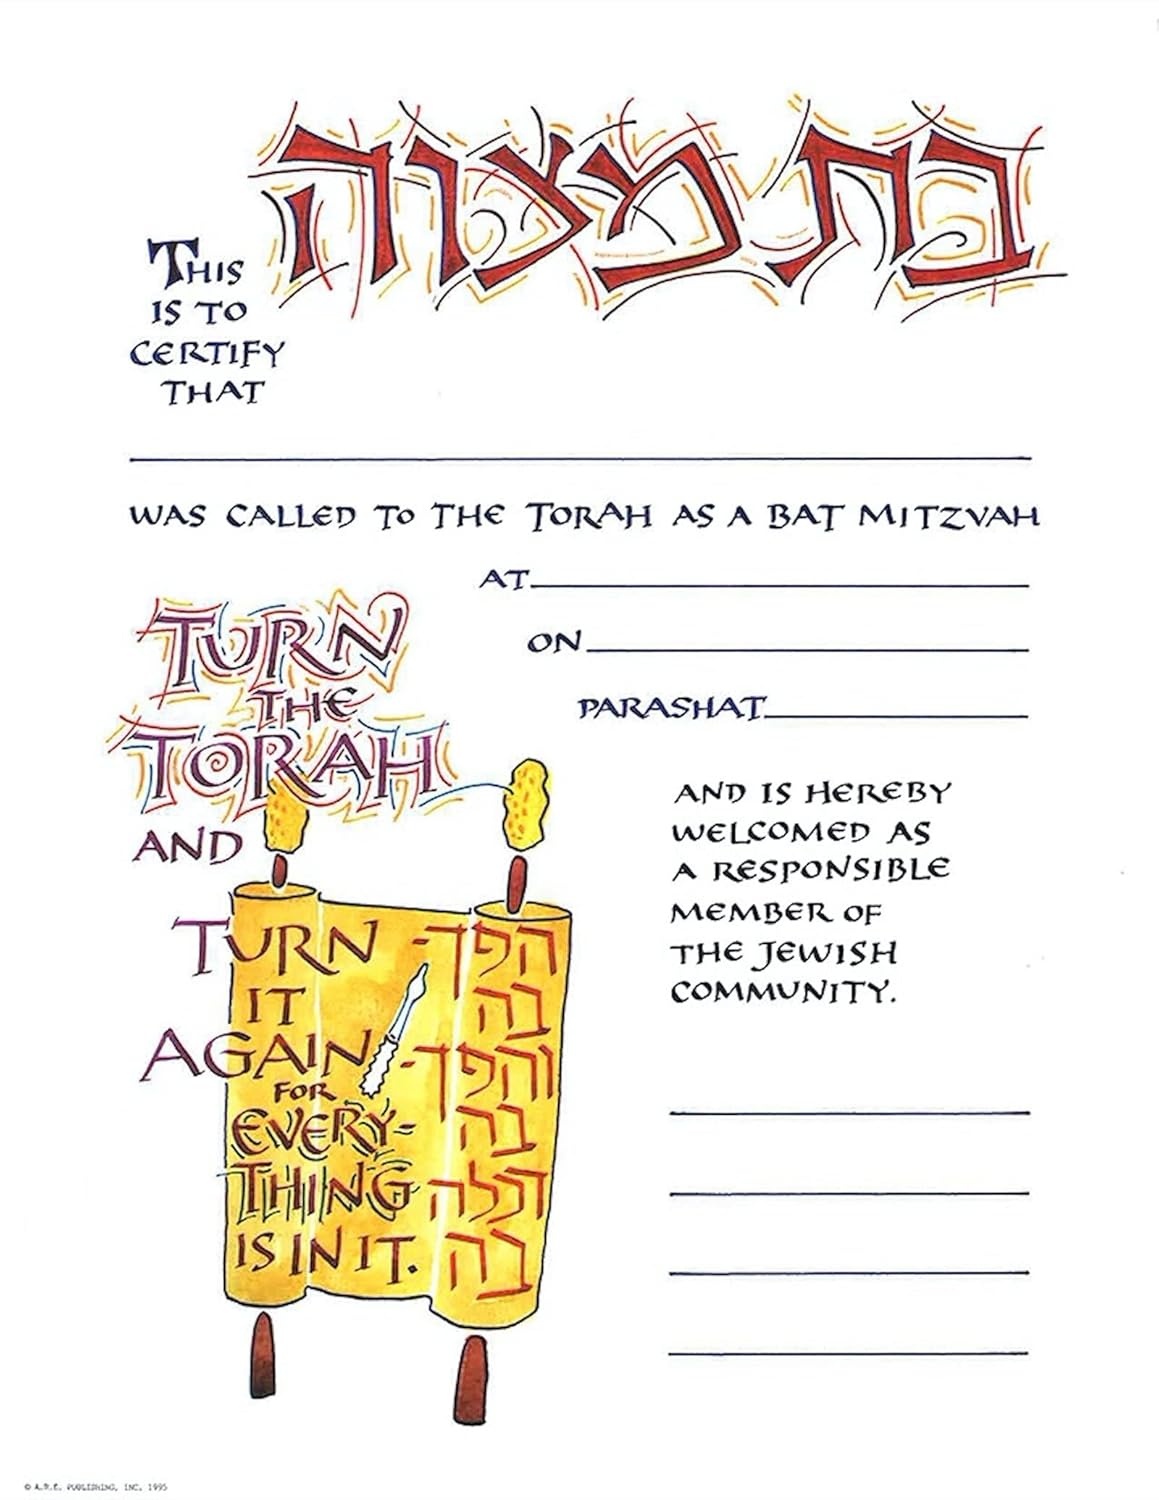 בת מצוה
THIS
IS TO
CERTIFY
THAT
WAS CALLED TO THE TORAH AS A BAT MITZVAH
AT
ON
PARASHAT
TURN
THE
TORAH
AND
TURN
IT
AGAIN
FOR
EVERY-
THING
IS IN IT.
הפך-
בה
והפך-
בה
דכלה
בה
AND IS HEREBY
WELCOMED AS
A RESPONSIBLE
MEMBER OF
THE JEWISH
COMMUNITY.
© A.R.E. PUBLISHING, INC. 1995